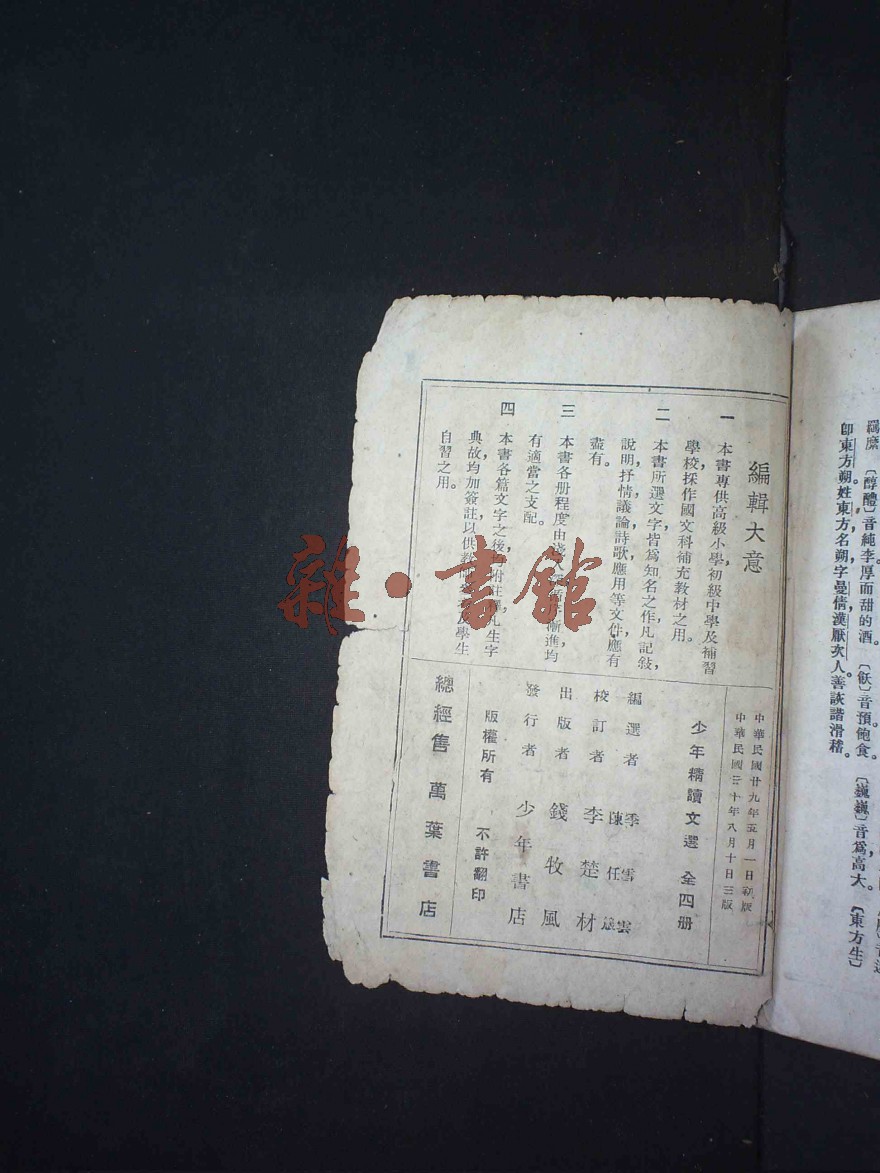 羈縻 〔醇醴〕音純李厚而甜的酒。 〔飫〕音預。飽食。 〔巍巍〕音爲高大。 〔東方生〕
卽東方朔。姓東方，名朔，字曼倩，漢厭次人。善詼諧滑稽。
編輯大意
一 本書專供高級小學，初級中學及補習
學校，採作國文科補充教材之用。
二 本書所選文字，皆爲知名之作，凡記敍，
說明，抒情，議論，詩歌，應用等文件，應有
盡有。
三 本書各册程度，由淺
漸進，均
有適當之支配。
四 本書各篇文字之後，均附註釋，凡生字
典故，均加簽註，以供教師
及學生
自習之用。
中華民國廿九年五月一日初版
中華民國三十年八月十日三版
少年精讀文選 全四册
編選者 季雪雲 陳任
校訂者 李楚材
出版者 錢牧風
發行者 少年書店
版權所有 不許翻印
總經售 萬葉書店
雜·書館